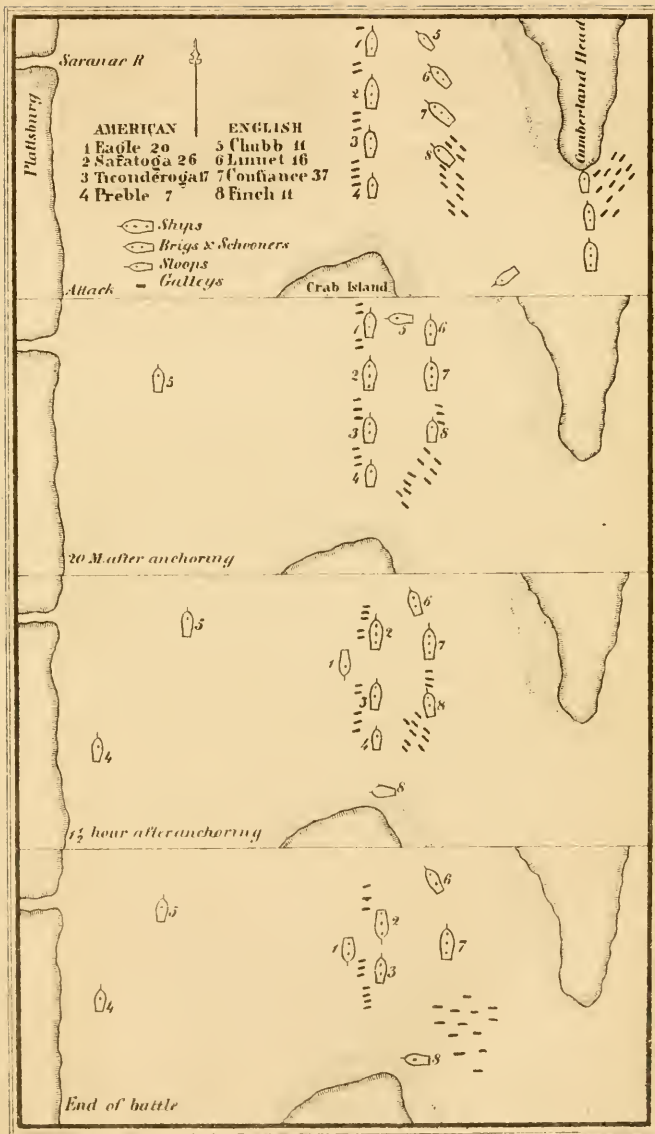 Saranac R
Plattsburg
Cumberland Head
AMERICAN
1 Eagle 20
2 Saratoga 26
3 Ticonderoga 17
4 Preble 7
ENGLISH
5 Chubb 11
6 Linnet 16
7 Confiance 37
8 Finch 11
Ships
Brigs & Schooners
Sloops
Galleys
1
2
3
4
5
6
7
8
Attack
Crab Island
1
5
6
5
2
7
3
8
4
20 M. after anchoring
6
5
2
7
1
3
8
4
4
8
1½ hour after anchoring
6
5
2
1
7
3
4
8
End of battle